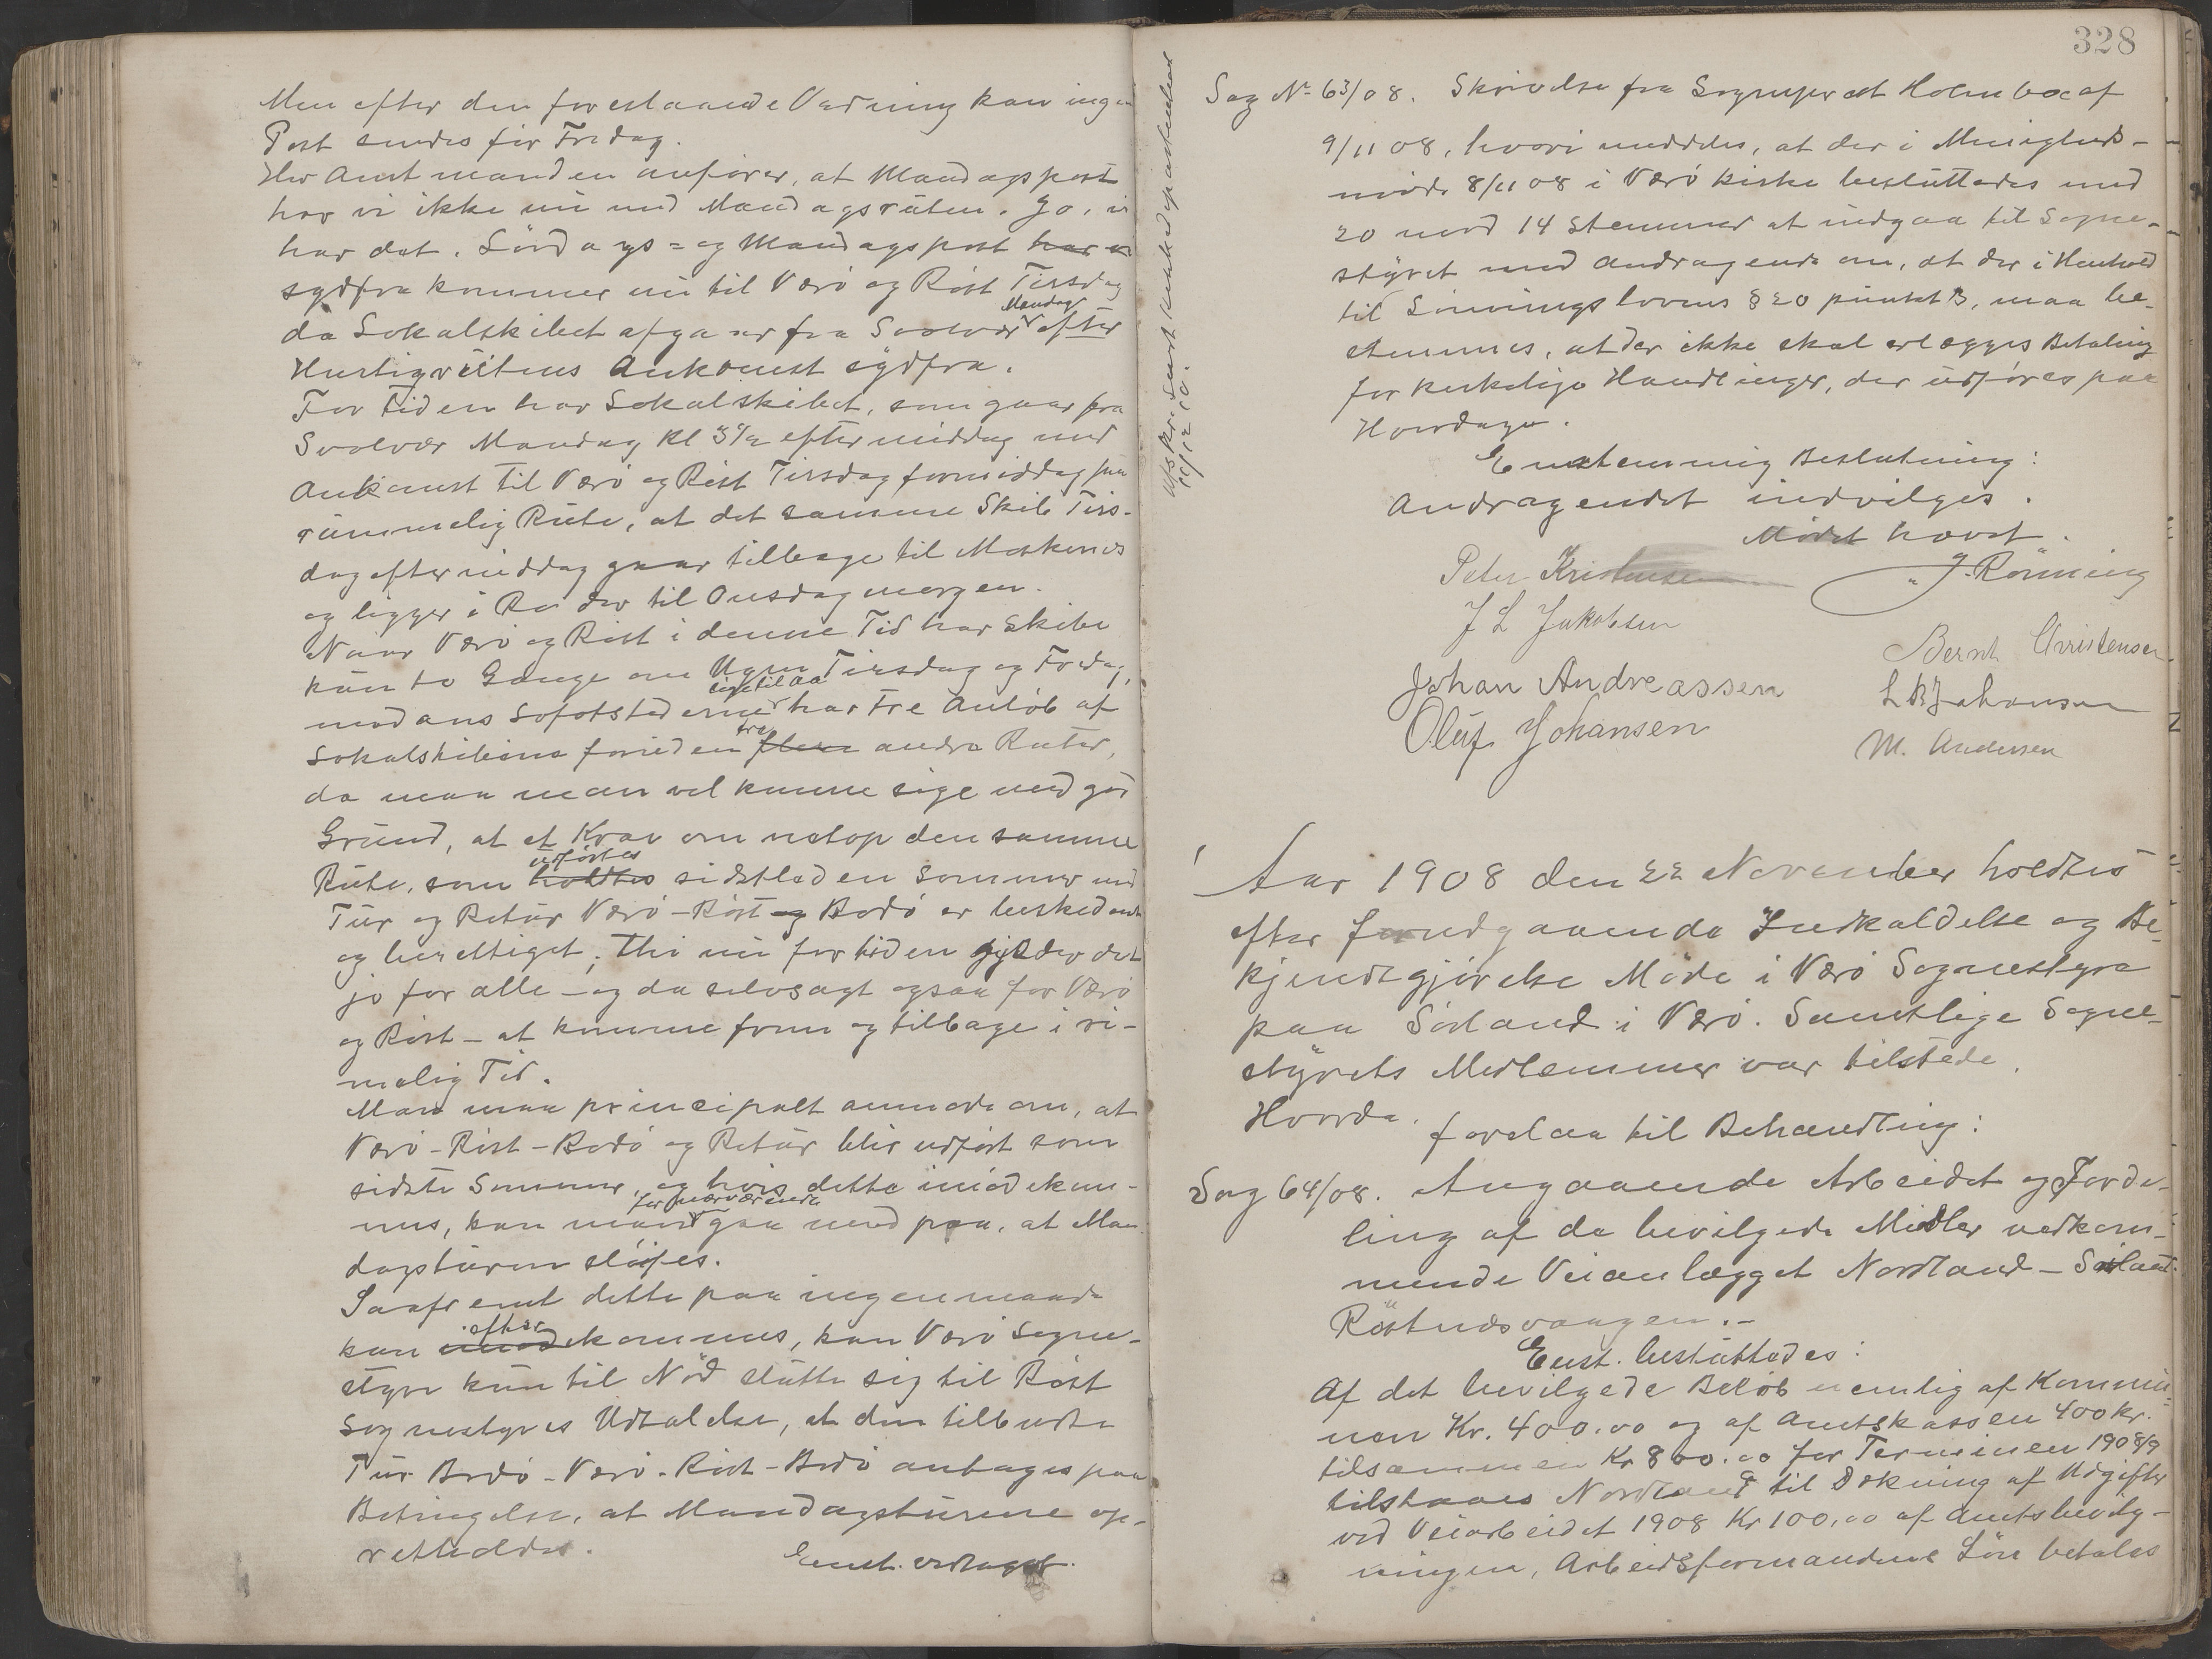 Men efter den forestaaende Vedning kan ingen
Post sendes før Fredag.
Hr Amtmanden anfører, at Mandagspost
har vi ikke nu med Mandagsruten. Jo, vi
har det. Lørdags= og Mandagspost har vi
sydfra kommer nu til Værø og Røst Tirsdag
da Lokalskibet afgaar fra Svolvær Mandag efter
Hurtigrutens Ankomst sydfra.
For tiden har Lokalskibet, som gaar fra
Svolvær Mandag Kl 3½ eftermiddag med
Ankomst til Værø og Røst Tirsdag formiddag saa
rummelig Rute, at det samme Skib Tirs-
dag eftermiddag gaar tilbage til Moskenes
og ligger i Ro der til Onsdag morgen.
Naar Værø og Røst i denne Tid har Skibe
kun to Gange om Ugen Tirsdag og Fredag,
medens Lofotstederne lige til Aa har tre Anløb af
Lokalskibene foruden tre flere andre Ruter,
da maa man vel kunne sige med god
Grund, at et Krav om netop den samme
Rute, som udførtes holdtes sidstleden Sommer med
Tur og Retur Værø-Røst og Bodø er beskedent
og berettiget; thi nu for tiden gjelder det
jo for alle - og da selvsagt ogsaa for Værø
og Røst - at komme frem og tilbage i ri-
melig Tid.
Man maa principalt anmode om, at
Værø-Røst-Bodø og Retur blir udført som
sidste Sommer, og hvis dette imødekom-
mes, kan man for nærværende gaa med paa, at Man-
dagsturen sløifes.
Saafremt dette paa ingen maade
kan efter imødekommes, kan Værø Sogne-
styre kun til Nød slutte sig til Røst
Sognestyres Udtalelse, at den tilbudte
Tur Bodø-Værø-Røst-Bodø antages paa
Betingelse, at Mandagsturene op-
retholdes.
Enst. vedtaget.
328
Afskr. sendt Kirkedepartementet
11/12 10.
Sag No 63/08. Skrivelse fra Sogneprest Holmboe af
9/11 08, hvori meddeles, at der i Menigheds-
møde 8/11 08 i Værø kirke besluttedes med
20 mod 14 Stemmer at indgaa til Sogne-
styret med Andragende om, at der i Henhold
til Lønningslovens § 20 punkt 3, maa be-
stemmes, at der ikke skal erlægges Betaling
for kirkelige Handlinger, der udføres paa
Hverdage.
Enstemmig Beslutning:
Andragendet indvilges.
Mødet hævet.
Peter Kristensen
J. Rønning
J L Jakobsen
Bernt Christensen
Johan Andreassen
L B Johansen
Oluf Johansen
M. Andersen
Aar 1908 den 22 November holdtes
efter forudgaaende Indkaldelse og Be-
kjendtgjørelse Møde i Værø Sognestyre
paa Sørland i Værø. Samtlige Sogne-
styrets Medlemmer var tilstede.
Hvorda.
forelaa til Behandling:
Sag 64/08. Angaaende Arbeidet og Forde-
ling af de bevilgede Midler vedkom-
mende Veianlægget Nordland - Sørland.
Røstnesvaagen.-
Enst. besluttedes:
Af det bevilgede Beløb nemlig af Kommu-
nen Kr. 400.00 og af Amtskassen 400 kr.
tilsammen Kr 800.00 for Terminen 1908/9
tilstaaes Nordland til Dækning af Udgifter
ved Veiarbeidet 1908 Kr 100.00 af Amtsbevilg-
ningen, Arbeidsformandens Løn betales